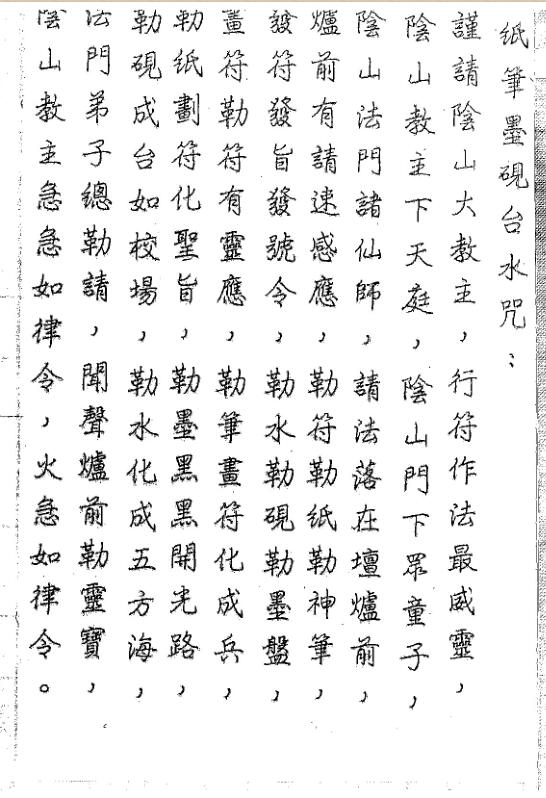 纸筆墨硯台水咒：
謹請陰山大教主，行符作法最威靈，
陰山教主下天庭，陰山門下眾童子，
陰山法門諸仙師，請法落在壇爐前，
爐前有請速感應，勒符勒纸勒神筆，
發符發旨發號令，勒水勒硯勒墨盤，
畫符勒符有靈應，勒筆畫符化成兵，
勒纸劃符化聖旨，勒墨黑黑開光路，
勒硯成台如校場，勒水化成五方海，
法門弟子總勒請，聞聲爐前勒靈寶，
陰山教主急急如律令，火急如律令。